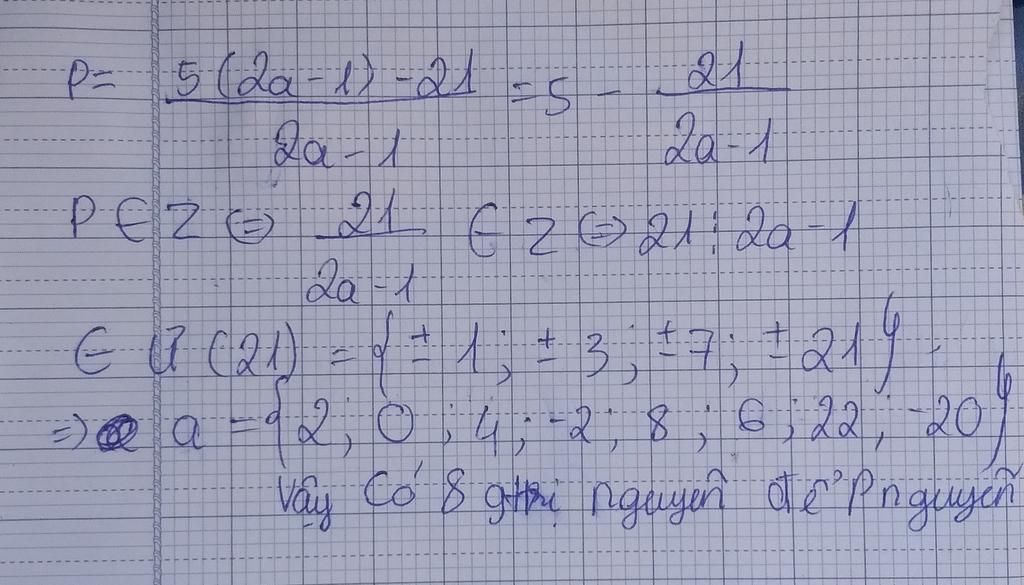 P = 5(2a-1)-21 / 2a-1 = 5 - 21 / 2a-1
P ∈ Z ⇔ 21 / 2a-1 ∈ Z ⇔ 21 ⋮ 2a-1
∈ Ư (21) = { ± 1 ; ± 3 ; ± 7 ; ± 21 } .
=> a = { 2 ; 0 ; 4 ; -2 ; 8 ; 6 ; 22 ; -20 }
Vậy có 8 nguyên để P nguyên